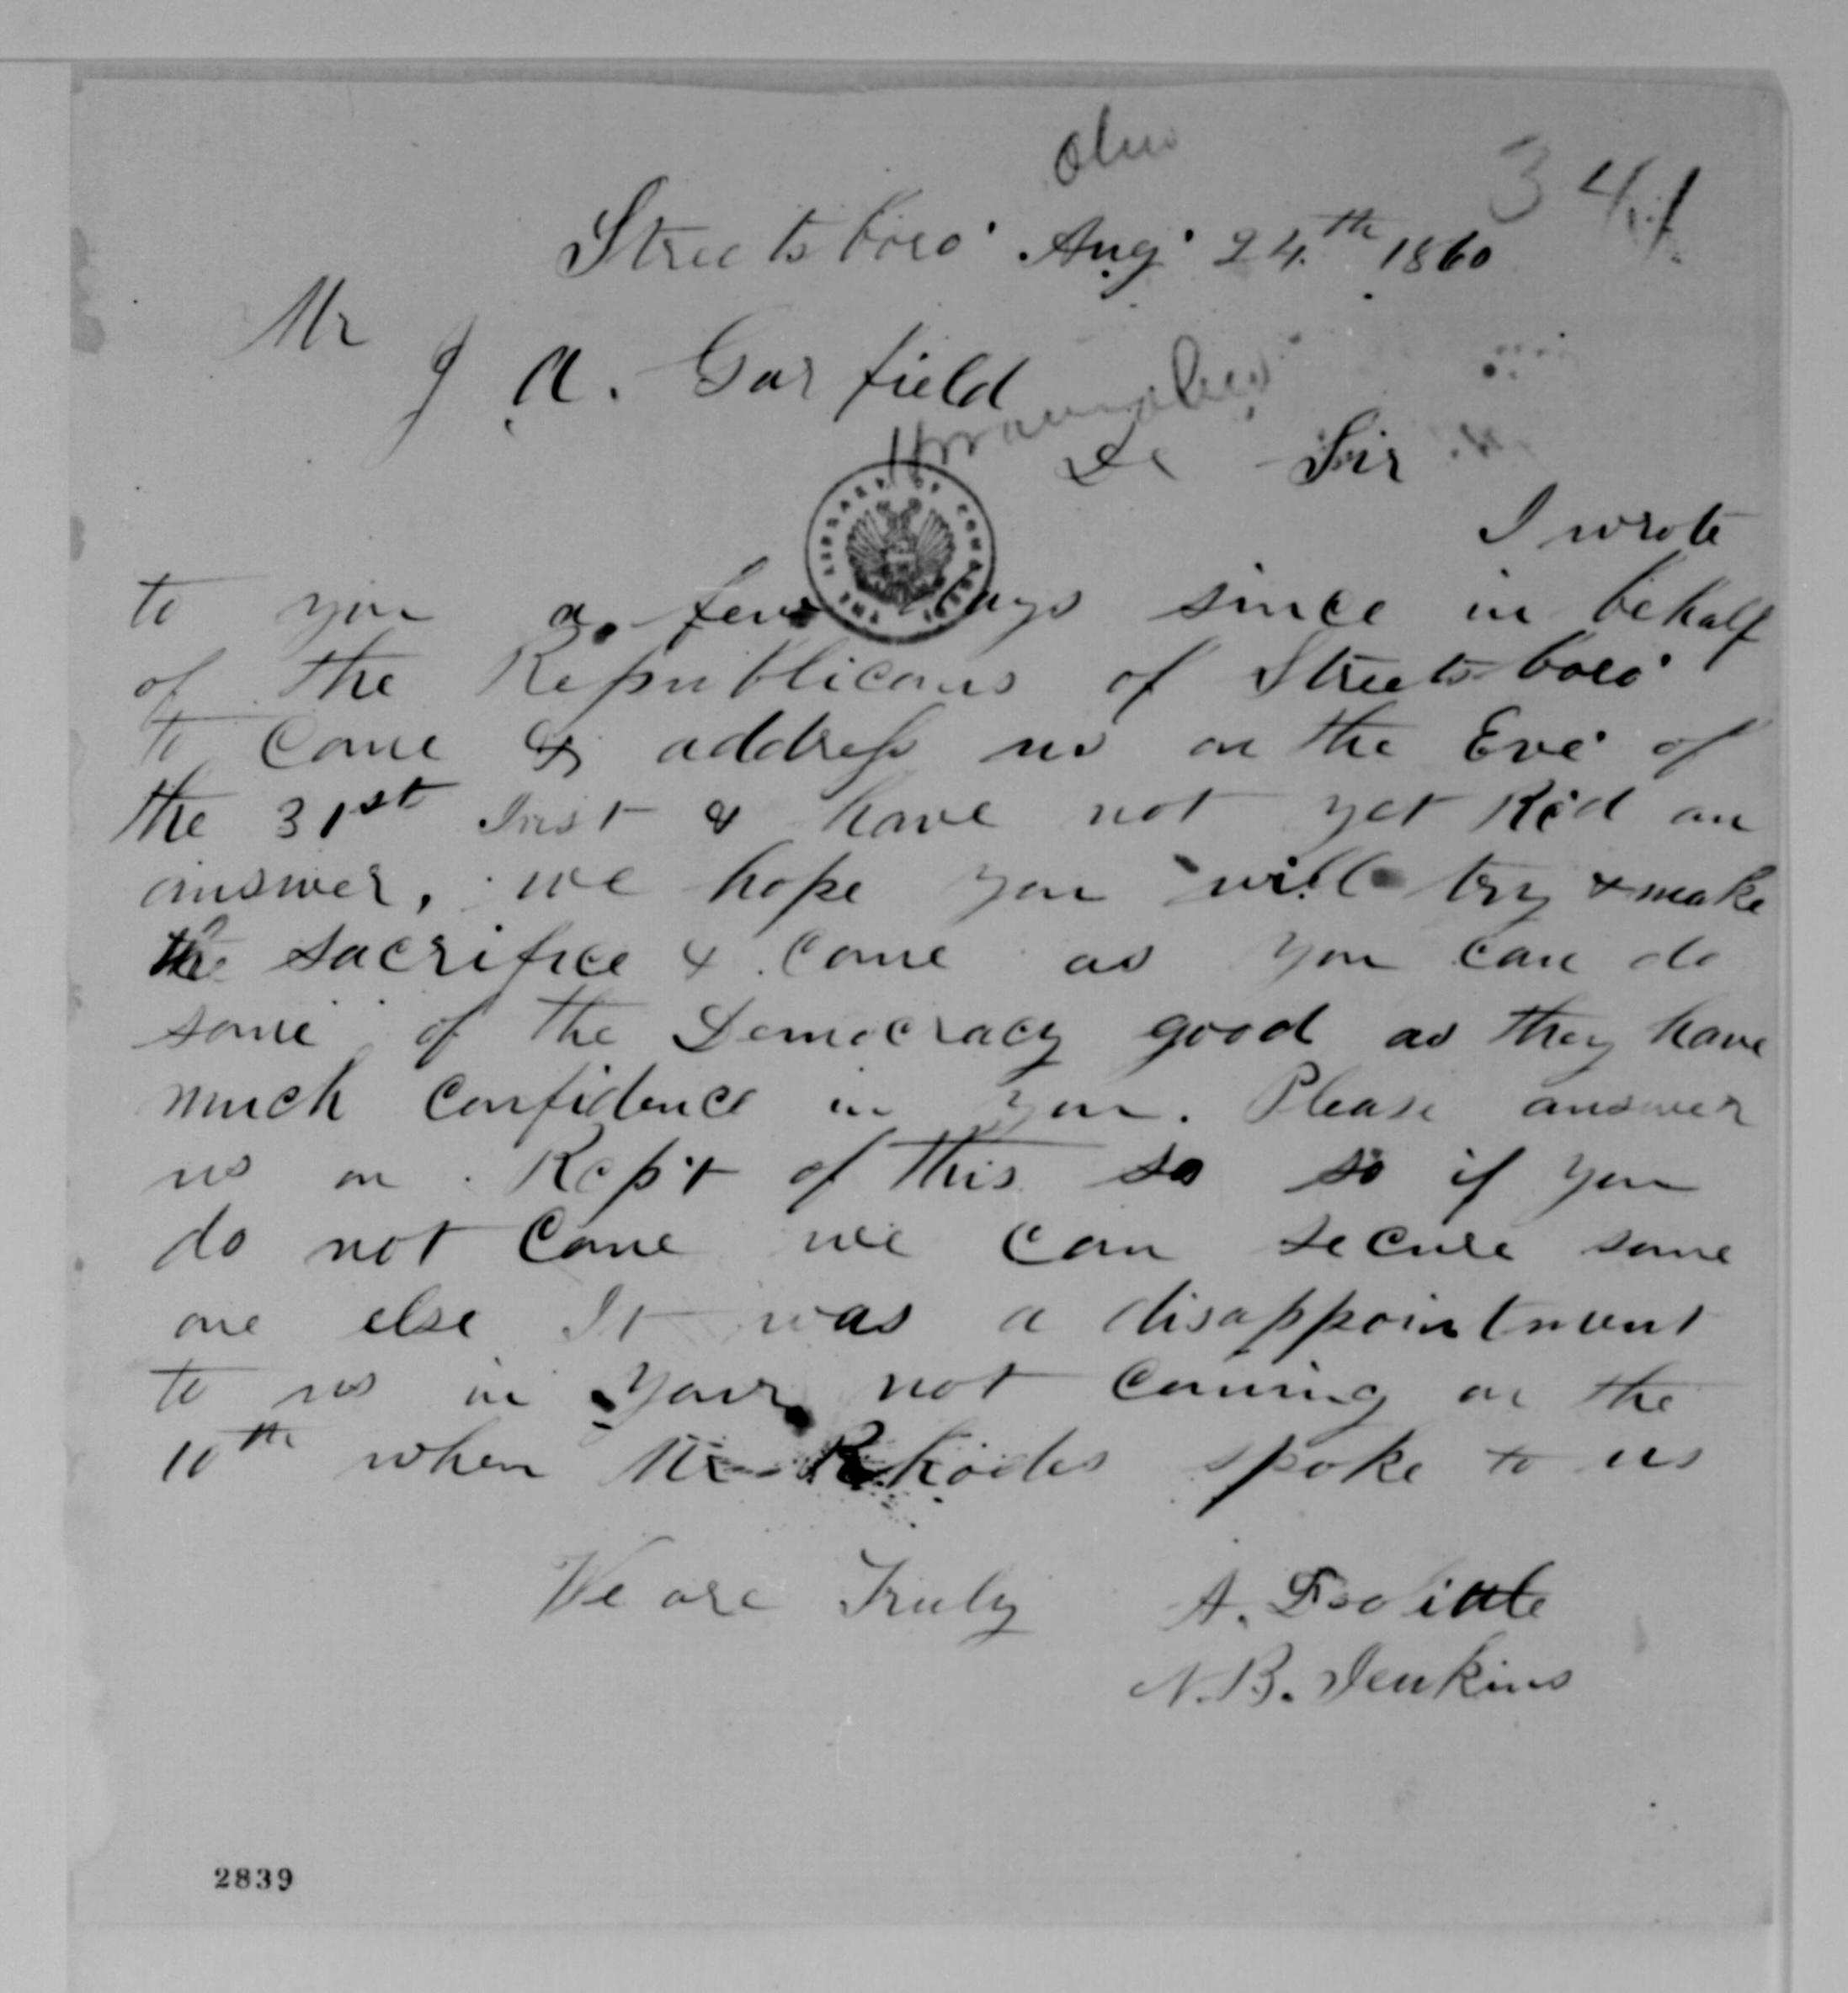 Ohio
341
Streetsboro' Aug. 24th 1860
Mr
J A. Garfield
De Sir
THE LIBRARY OF CONGRESS
I wrote
to you a few days since in behalf
of the Republicans of Streetsboro'
to come & address us on the Eve' of
the 31st Inst & have not yet Rc'd an
answer, we hope you will try & make
the sacrifice & come as you can do
some of the Democracy good as they have
much confidence in you. Please answer
us on Rep't of this so so if you
do not come we can secure some
one else It was a disappointment
to us in your not coming on the
10th when Mr Rhodes spoke to us
We are Truly A. Doolittle
N. B. Jenkins
2839